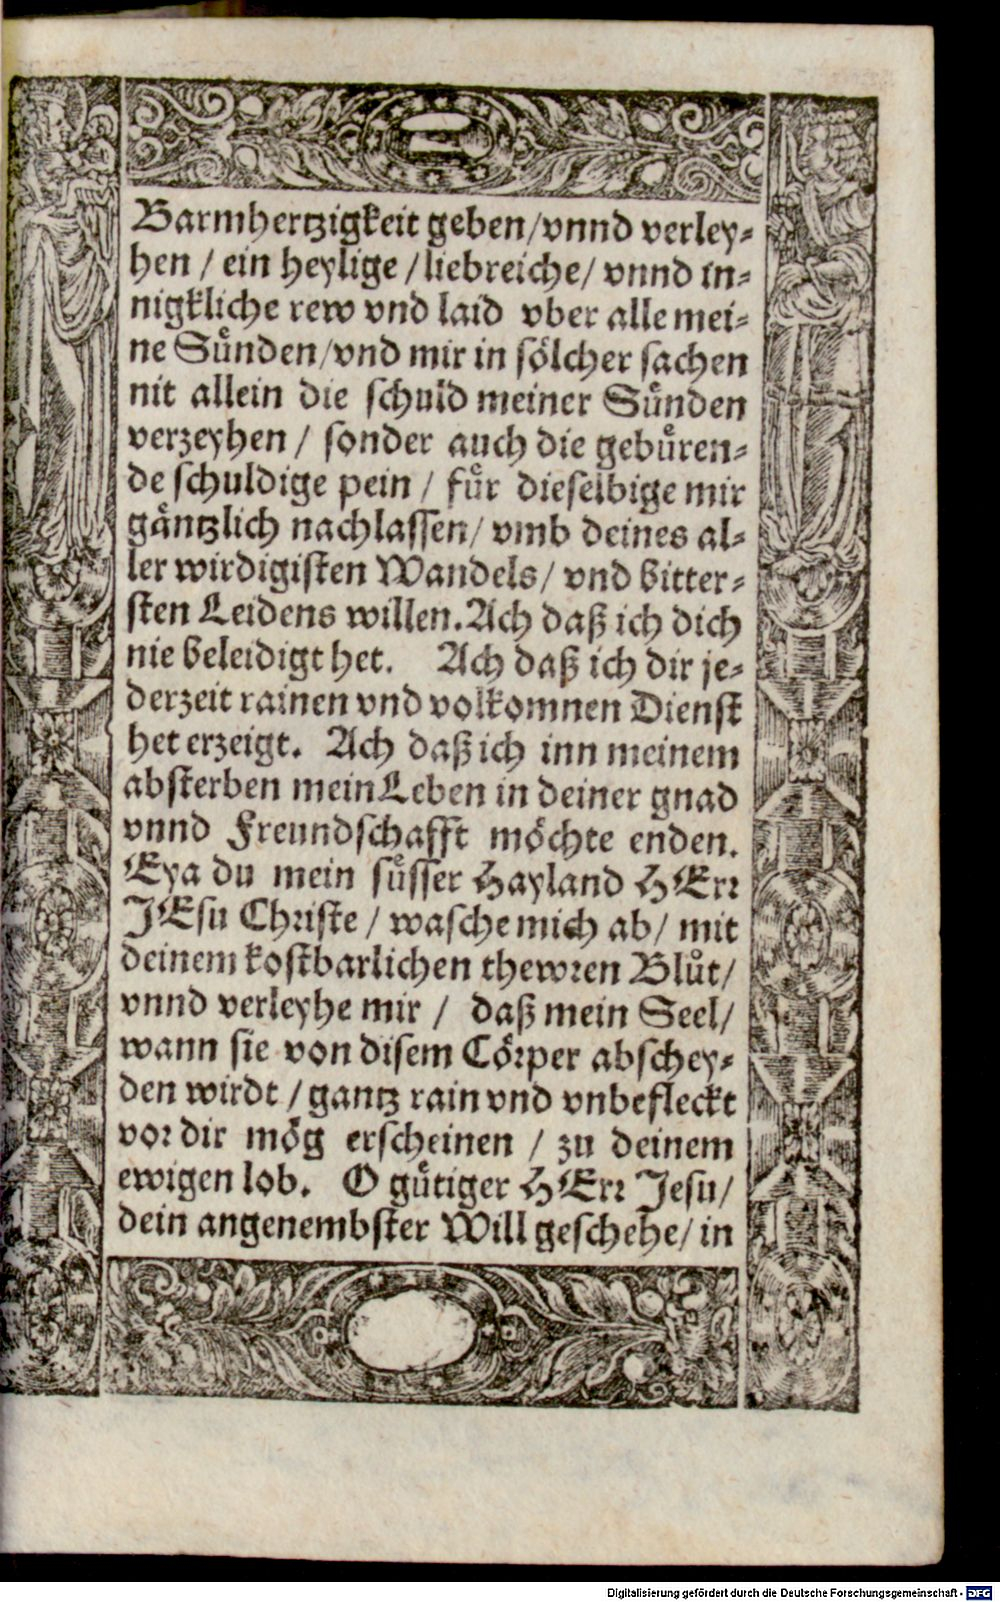 Barmhertzigkeit geben/vnnd verley⸗
hen / ein heylige / liebreiche/ vnnd in⸗
nigkliche rew vnd laid vber alle mei⸗
ne Sünden/vnd mir in sölcher sachen
nit allein die schuld meiner Sünden
verzeyhen / sonder auch die gebüren⸗
de schuldige pein / für dieselbige mir
gäntzlich nachlassen/ vmb deines al⸗
ler wirdigisten Wandels/ vnd bitter⸗
sten Leidens willen. Ach daß ich dich
nie beleidigt het. Ach daß ich dir je⸗
derzeit rainen vnd volkomnen Dienst
het erzeigt. Ach daß ich inn meinem
absterben mein Leben in deiner gnad
vnnd Freundschafft möchte enden.
Eya du mein süsser Hayland HErr
JEsu Christe / wasche mich ab/ mit
deinem kostbarlichen thewren Blůt/
vnnd verleyhe mir / daß mein Seel/
wann sie von disem Cörper abschey⸗
den wirdt / gantz rain vnd vnbefleckt
vor dir mög erscheinen / zu deinem
ewigen lob. O gütiger HErr Jesu/
dein angenembster Will geschehe/ in
Digitalisierung gefördert durch die Deutsche Forschungsgemeinschaft - DFG